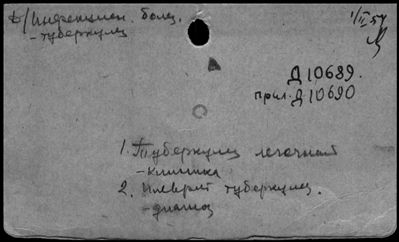 Инфекцион. болез.
- туберкулез
1/II 54
Д10689.
прил. Д10690
1. Туберкулез легочный
- клиника
2. Плеврит туберкулез.
- диагноз